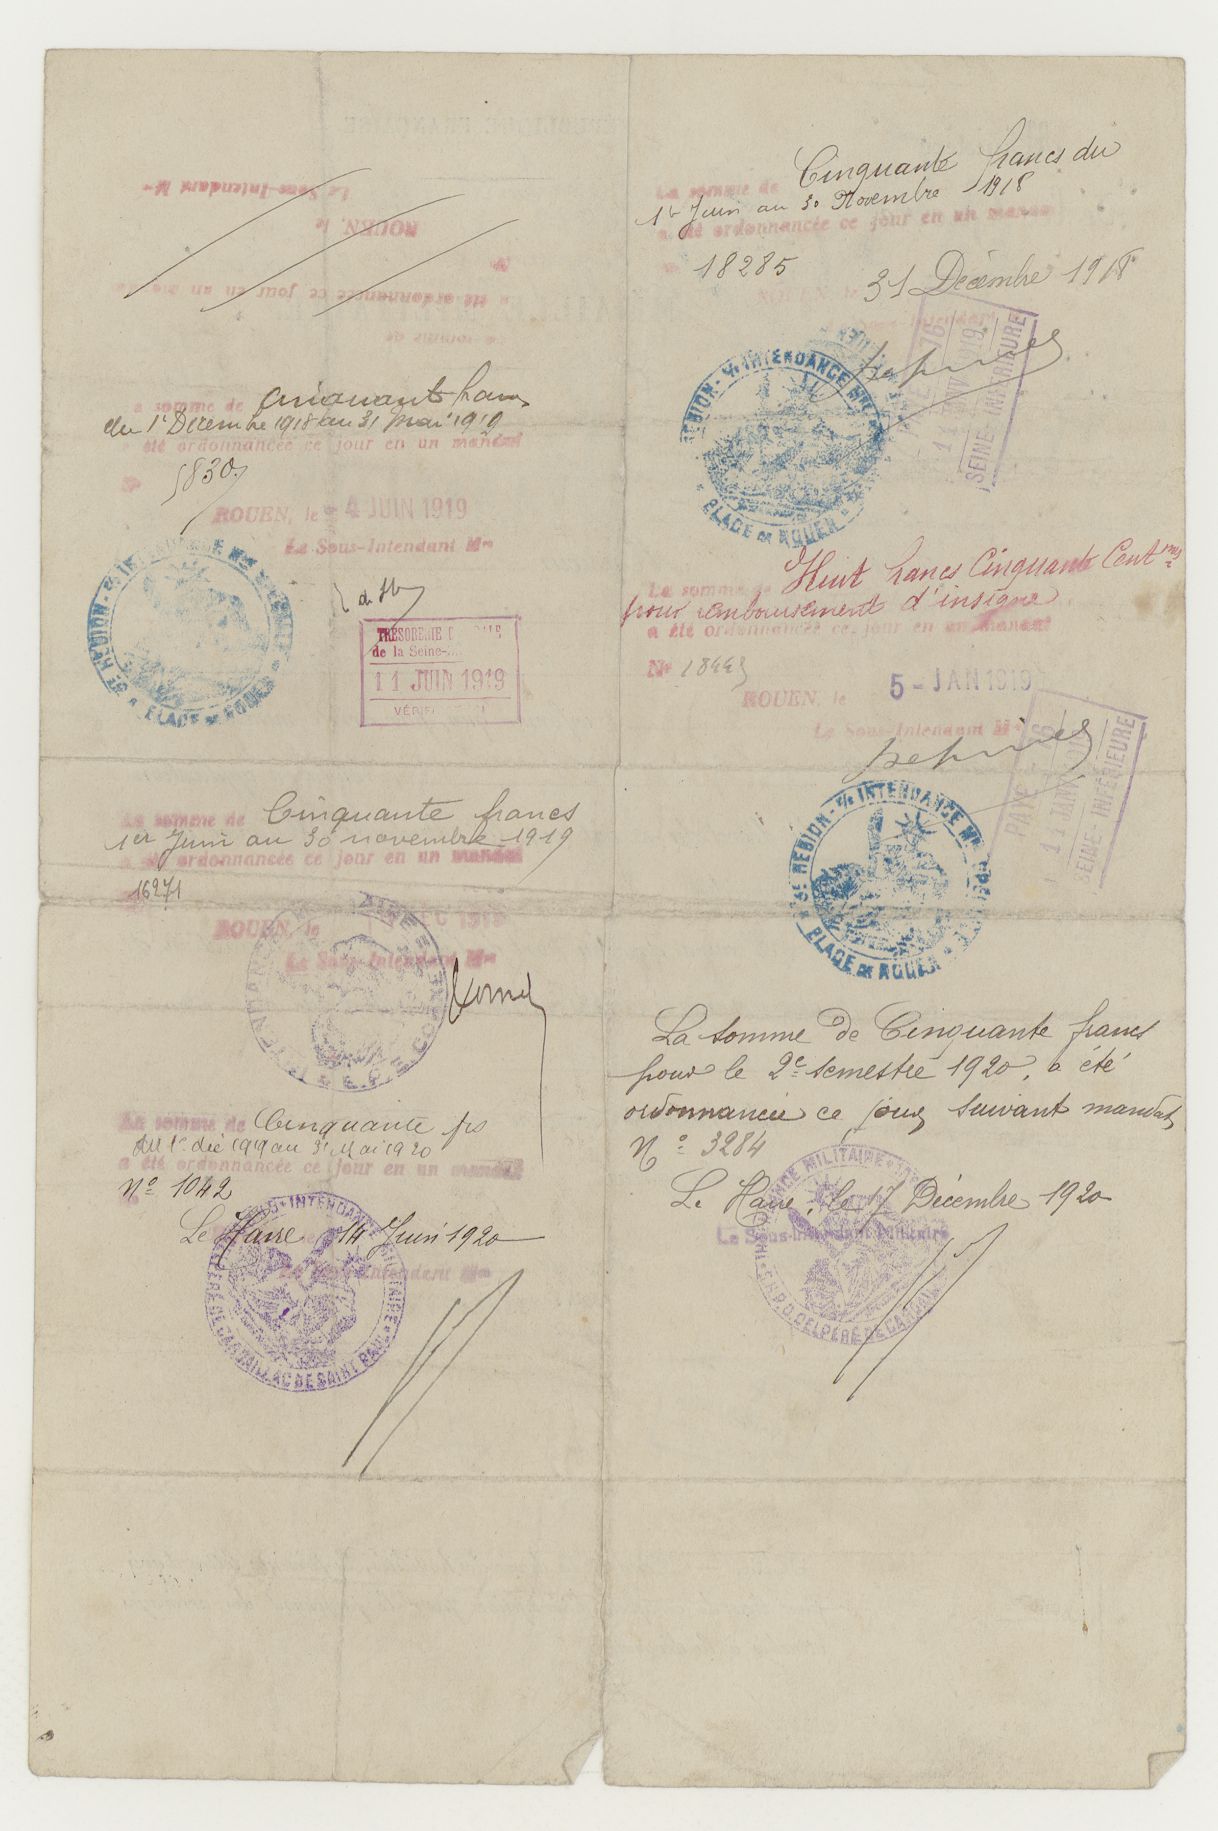 Le Sous-Intendant Mre
ROUEN, le
No
a été ordonnancée ce jour en un
La somme de
La somme de cinquante francs
du 1r Décembre 1918 au 31 mai 1919
a été ordonnancée ce jour en un mandat
5830
ROUEN, le 4 JUIN 1919
Le Sous-Intendant Mre
3E REGION - S/s INTENDANCE
PLACE DE ROUEN
TRÉSORERIE
de la Seine-
11 JUIN 1919
La somme de Cinquante francs
1er Juin au 30 novembre 1919
a été ordonnancée ce jour en un mandat
16271
ROUEN, le DEC 1919
Le Sous-Intendant Mre
La somme de Cinquante frs
du 1er déc 1919 au 31 Mai 1920
a été ordonnancée ce jour en un mandat
No 1042
Le Havre 14 Juin 1920
Le Sous-Intendant Mre
INTENDANCE MILITAIRE
DE CARDAILLAC DE SAINT PAUL
La somme de Cinquante francs du
1r Juin au 30 Novembre 1918
a été ordonnancée ce jour en un mandat
No 18285
ROUEN, le 31 Décembre 1918
3E REGION - S/s INTENDANCE
PLACE DE ROUEN
11 JANV 1919
SEINE-INFÉRIEURE
La somme de Huit francs Cinquante Centmes
pour remboursement d'insigne
a été ordonnancée ce jour en un mandat
No 18443
ROUEN, le 5 - JAN 1919
Le Sous-Intendant Mre
PAYÉ
11 JANV
SEINE-INFÉRIEURE
3E REGION - S/s INTENDANCE
PLACE DE ROUEN
La somme de Cinquante francs
pour le 2e semestre 1920, a été
ordonnancée ce jour suivant mandat
No 3284
Le Havre, le 17 Décembre 1920
Le Sous-Intendant Militaire